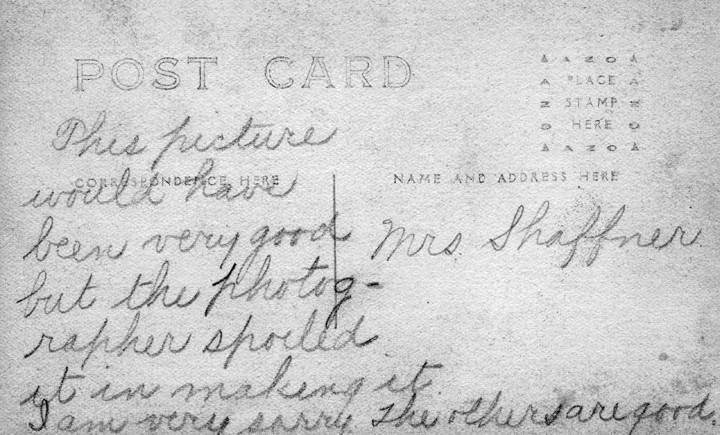 POST CARD
AZOA
PLACE
STAMP
HERE
AZOA
CORRESPONDENCE HERE
NAME AND ADDRESS HERE
This picture
would have
been very good
but the photog-
rapher spoiled
it in making it
I am very sorry The others are good.
Mrs Shaffner